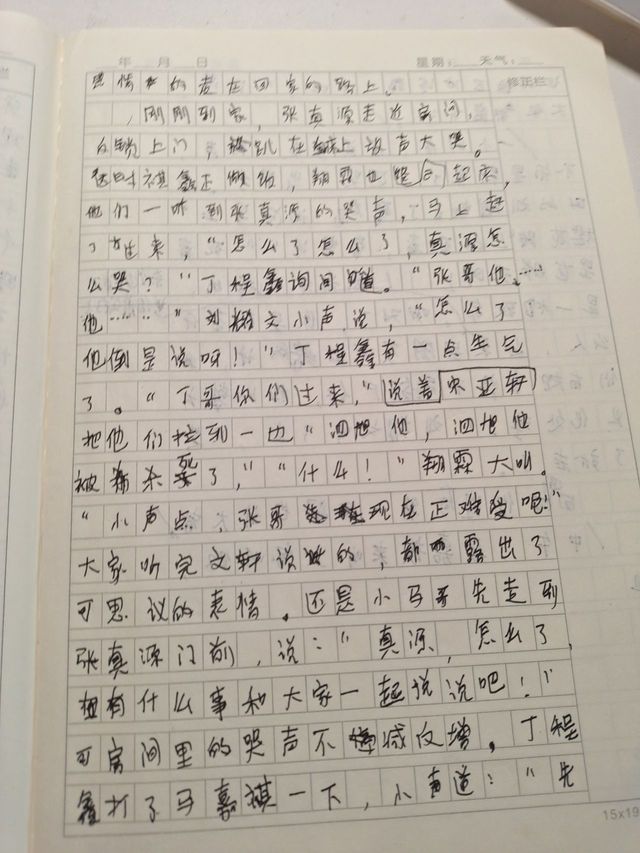 年 月 日 星期： 天气：
修正栏
的走在回家的路上。
，刚刚到家，张真源走进房间，
反锁上门，就趴在床上放声大哭。
这时祺鑫正做饭，翔霖也起床，
他们一听到张真源的哭声，马上赶
了过来，“怎么了怎么了，真源怎
么哭？”丁程鑫询问道。“张哥他……
他……”刘耀文小声说，“怎么了
他倒是说呀！”丁程鑫有一点生气
了。“丁哥你们过来，”说着宋亚轩
把他们拉到一边“泗旭他，泗旭他
被杀死了，”“什么！”翔霖大叫。
“小声点，张哥现在正难受呢！”
大家听完文轩说的，都露出了
可思议的表情。还是小马哥先走到
张真源门前，说：“真源，怎么了，
有什么事和大家一起说说吧！”
可房间里的哭声不减反增。丁程
鑫打了马嘉祺一下，小声道：“先
15x19